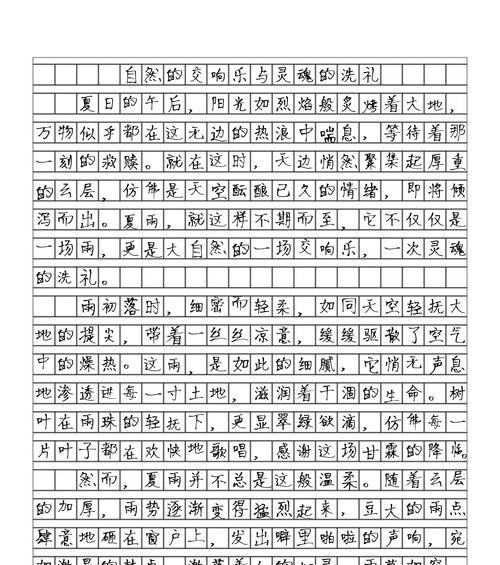 自然的交响乐与灵魂的洗礼
夏日的午后，阳光如烈焰般炙烤着大地，
万物似乎都在这无边的热浪中喘息，等待着那
一刻的救赎。就在这时，天边悄然聚集起厚重
的云层，仿佛是天空酝酿已久的情绪，即将倾
泻而出。夏雨，就这样不期而至，它不仅仅是
一场雨，更是大自然的一场交响乐，一次灵魂
的洗礼。
雨初落时，细密而轻柔，如同天空轻抚大
地的提尖，带着一丝丝凉意，缓缓驱散了空气
中的燥热。这雨，是如此的细腻，它悄无声息
地渗透进每一寸土地，滋润着干涸的生命。树
叶在雨珠的轻抚下，更显翠绿欲滴，仿佛每一
片叶子都在欢快地歌唱，感谢这场甘霖的降临。
然而，夏雨并不总是这般温柔。随着云层
的加厚，雨势逐渐变得猛烈起来，豆大的雨点
肆意地砸在窗户上，发出噼里啪啦的声响，宛